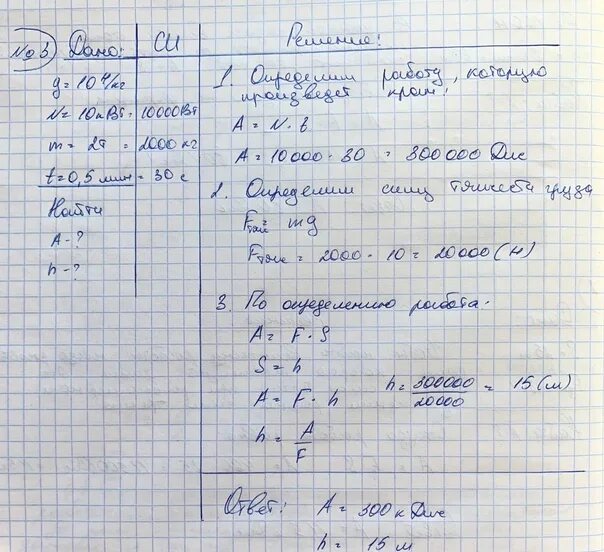 №3 Дано: СИ
g = 10 Н/кг
N = 10кВт = 10000Вт
m = 2т = 2000 кг
t = 0,5 мин = 30 с
Найти
A - ?
h - ?
Решение:
1. Определим работу, которую
произведет кран:
A = N · t
A = 10000 · 30 = 300000 Дж
2. Определим силу тяжести груза
Fтяж = mg
Fтяж = 2000 · 10 = 20000 (Н)
3. По определению работа.
A = F · S
S = h
A = F · h
h = A/F
h = 300000/20000 = 15 (м)
Ответ: A = 300 кДж
h = 15 м